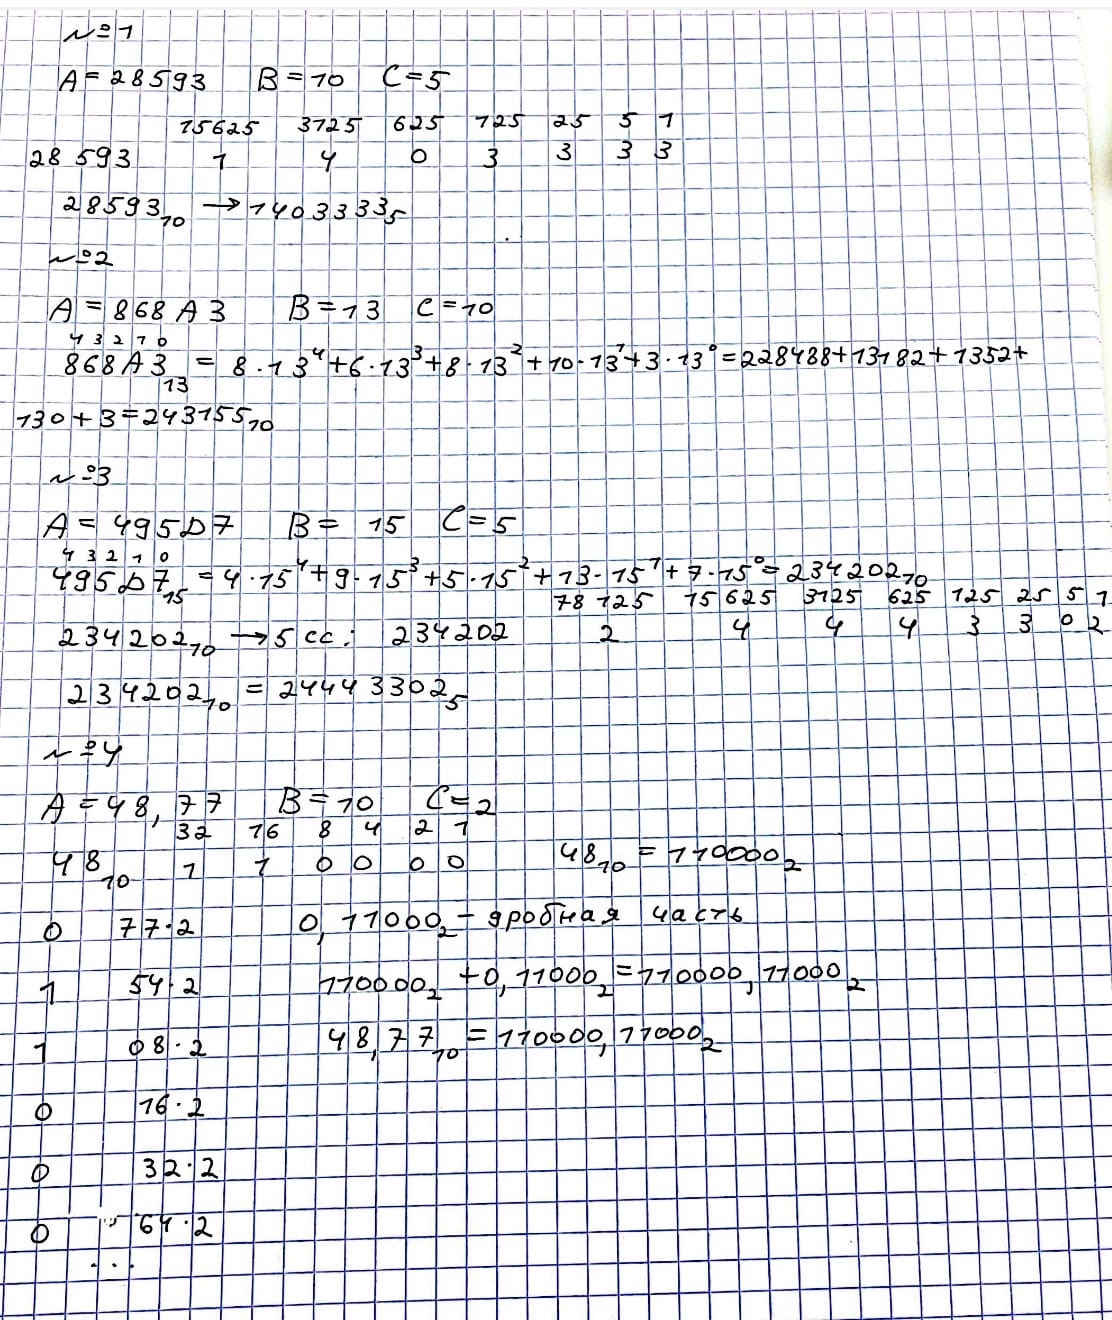 №1
A = 28593 B = 10 C = 5
15625 3125 625 125 25 5 1
28 593 1 4 0 3 3 3 3
28593₁₀ → 1403333₅
№2
A = 868A3 B = 13 C = 10
4 3 2 1 0
868A3₁₃ = 8·13⁴+6·13³+8·13²+10·13¹+3·13⁰=228488+13182+1352+
130+3=243155₁₀
№3
A = 495D7 B = 15 C = 5
4 3 2 1 0
495D7₁₅ = 4·15⁴+9·15³+5·15²+13·15¹+7·15⁰=234202₁₀
78 125 15 625 3125 625 125 25 5 1
234202₁₀ → 5 сс: 234202 2 4 4 4 3 3 0 2
234202₁₀ = 24443302₅
№4
A = 48,77 B = 10 C = 2
32 16 8 4 2 1
48₁₀ 1 1 0 0 0 0 48₁₀ = 110000₂
0 77·2 0,11000₂ – дробная часть
1 54·2 110000₂ + 0,11000₂ = 110000,11000₂
1 08·2 48,77₁₀ = 110000,11000₂
0 16·2
0 32·2
0 64·2
...